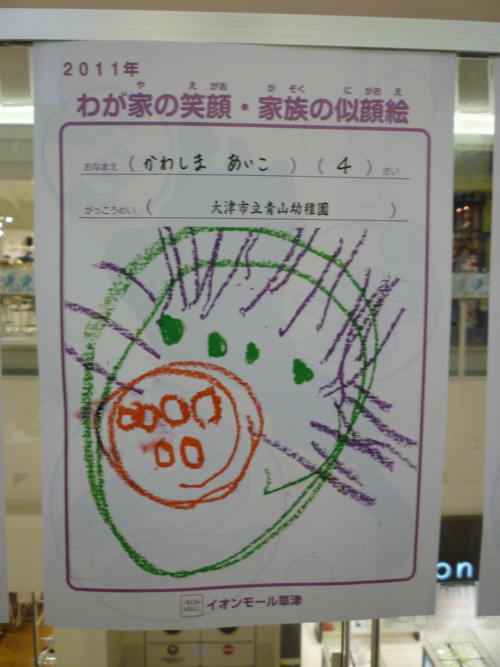 2011年
わが家の笑顔・家族の似顔絵
おなまえ(かわしま あいこ)(4)さい
がっこうめい(大津市立青山幼稚園)
AEON MALL イオンモール草津
on